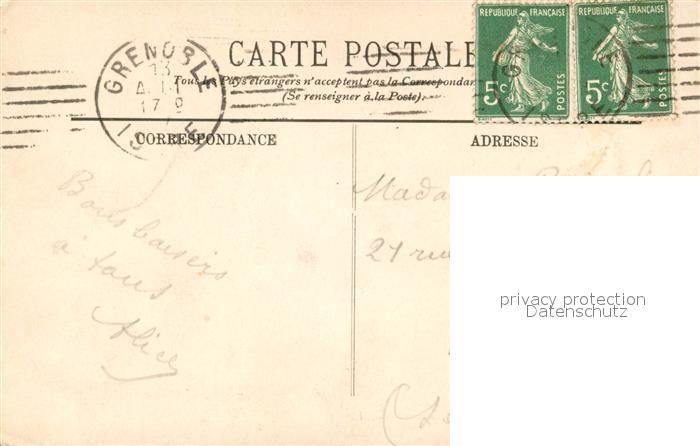 CARTE POSTALE
Tous les Pays étrangers n'acceptent pas la Correspondan
(Se renseigner à la Poste).
GRENOBLE
13
17
19
RÉPUBLIQUE FRANÇAISE
5c
POSTES
RÉPUBLIQUE FRANÇAISE
5c
POSTES
CORRESPONDANCE
ADRESSE
Bons baisers
à tous
Alice
Mada
21 rue
privacy protection
Datenschutz